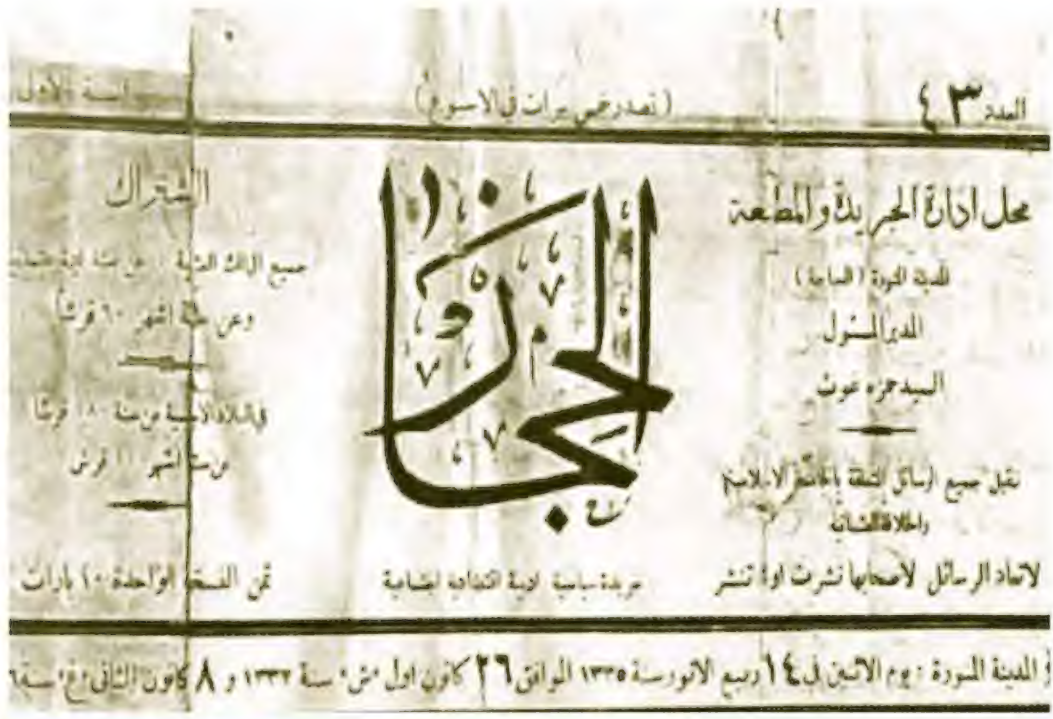 العدد ٤٣
(تصدر خمس مرات في الاسبوع)
السنة الاولى
محل ادارة الجريدة والمطبعة
المدينة المنورة (المناخة)
المدير المسئول
السيد حمزه غوث
تقبل جميع الرسائل المتعلقة بالجامعة الاسلامية
لاتعاد الرسائل لاصحابها نشرت اولم تنشر
الحجاز
جريدة سياسية ادبية اقتصادية اجتماعية
الاشتراك
جميع عن سنة
وعن ستة اشهر ٦٠ قرشا
في البلاد الاجنبية عن سنة قرشا
عن ستة اشهر قرش
ثمن النسخة الواحدة ١٠ بارات
في المدينة المنورة : يوم الاثنين في ١٤ ربيع الانور سنة ١٣٣٥ الموافق ٢٦ كانون اول «ش» سنة ١٣٣٢ و ٨ كانون الثاني «غ» سنة